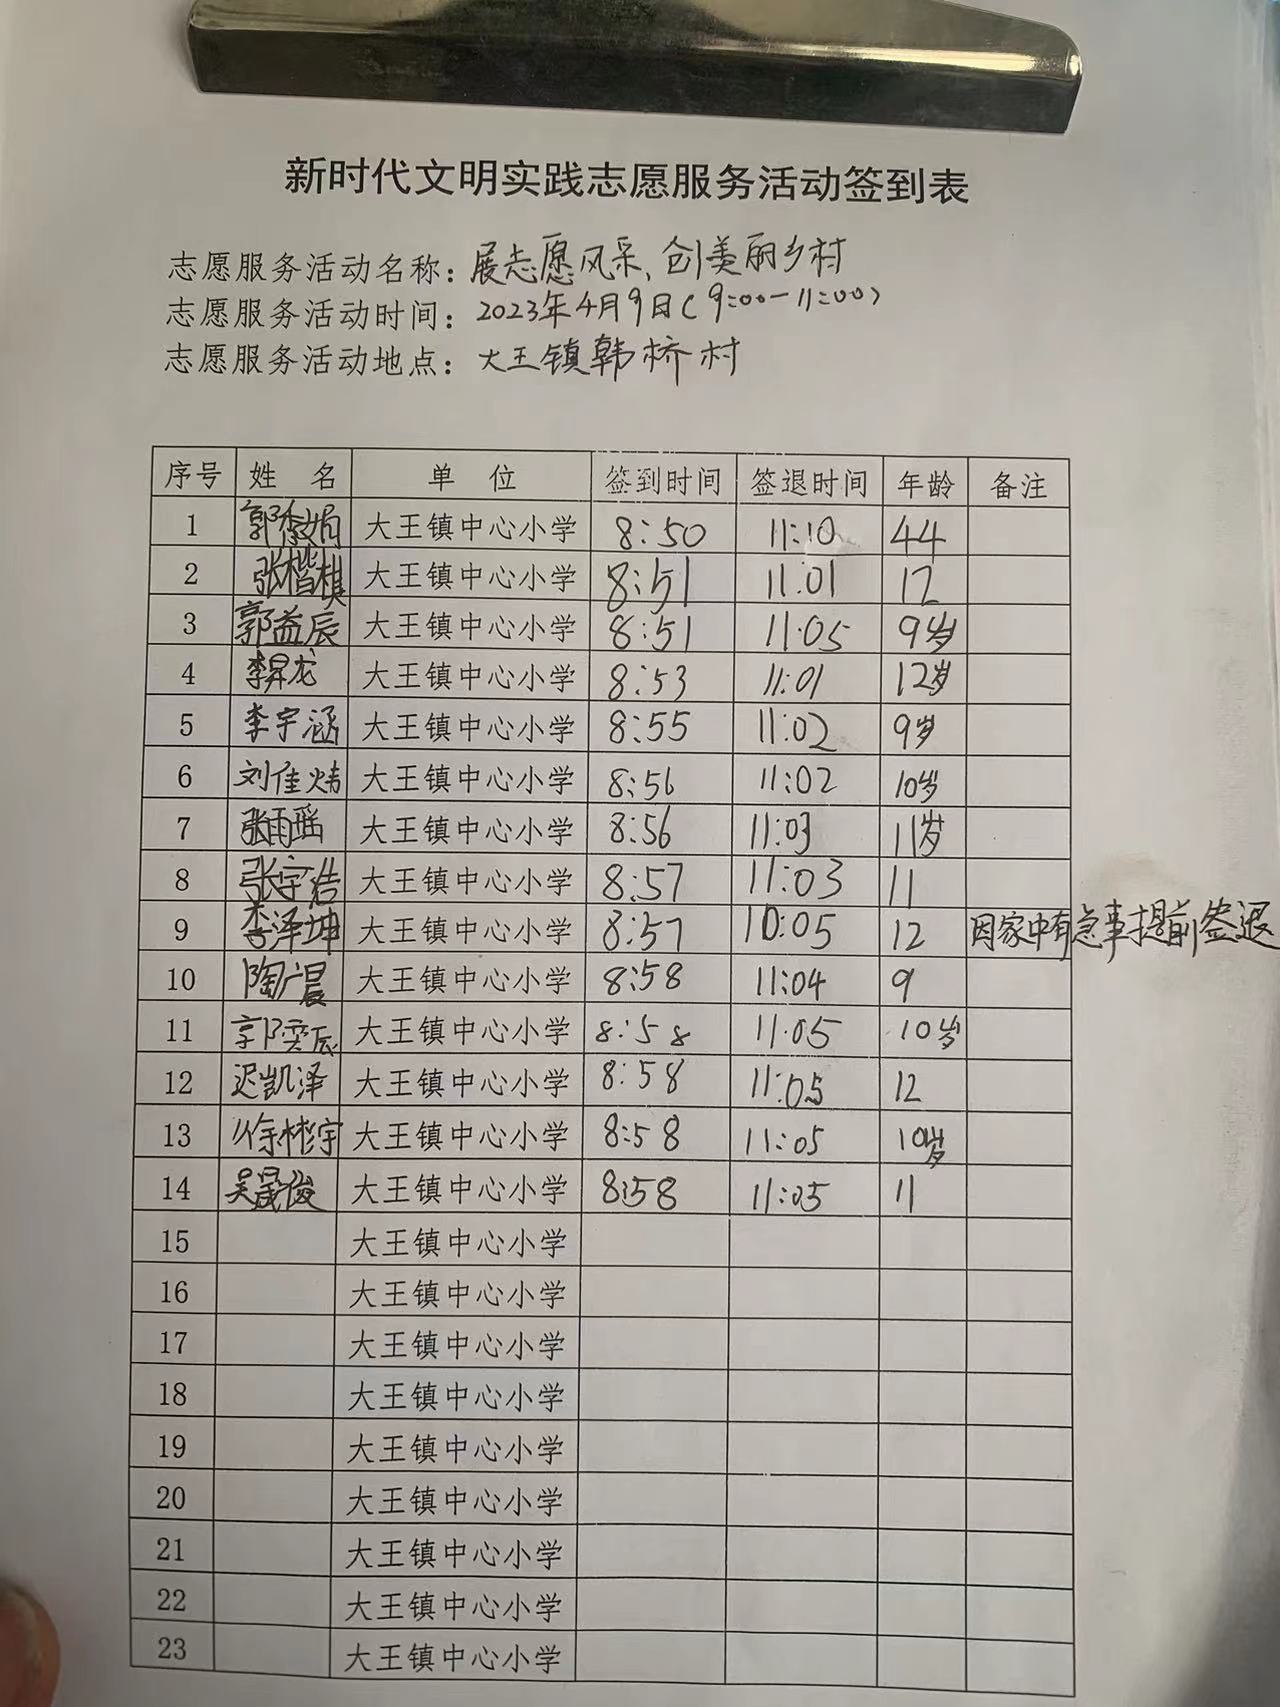 新时代文明实践志愿服务活动签到表
志愿服务活动名称：展志愿风采、创美丽乡村
志愿服务活动时间：2023年4月9日（9:00-11:00）
志愿服务活动地点：大王镇韩桥村
序号 姓 名 单 位 签到时间 签退时间 年龄 备注
1 郭 娟 大王镇中心小学 8:50 11:10 44
2 张楷棋 大王镇中心小学 8:51 11.01 12
3 郭益辰 大王镇中心小学 8:51 11.05 9岁
4 李昇龙 大王镇中心小学 8:53 11:01 12岁
5 李宇涵 大王镇中心小学 8:55 11:02 9岁
6 刘佳炜 大王镇中心小学 8:56 11:02 10岁
7 张雨瑶 大王镇中心小学 8:56 11:03 11岁
8 张宇浩 大王镇中心小学 8:57 11:03 11
9 李泽坤 大王镇中心小学 8:57 10:05 12 因家中有急事提前签退
10 陶广晨 大王镇中心小学 8:58 11:04 9
11 郭奕辰 大王镇中心小学 8:58 11:05 10岁
12 迟凯泽 大王镇中心小学 8:58 11:05 12
13 徐彬宇 大王镇中心小学 8:58 11:05 10岁
14 吴晟俊 大王镇中心小学 8:58 11:05 11
15 大王镇中心小学
16 大王镇中心小学
17 大王镇中心小学
18 大王镇中心小学
19 大王镇中心小学
20 大王镇中心小学
21 大王镇中心小学
22 大王镇中心小学
23 大王镇中心小学